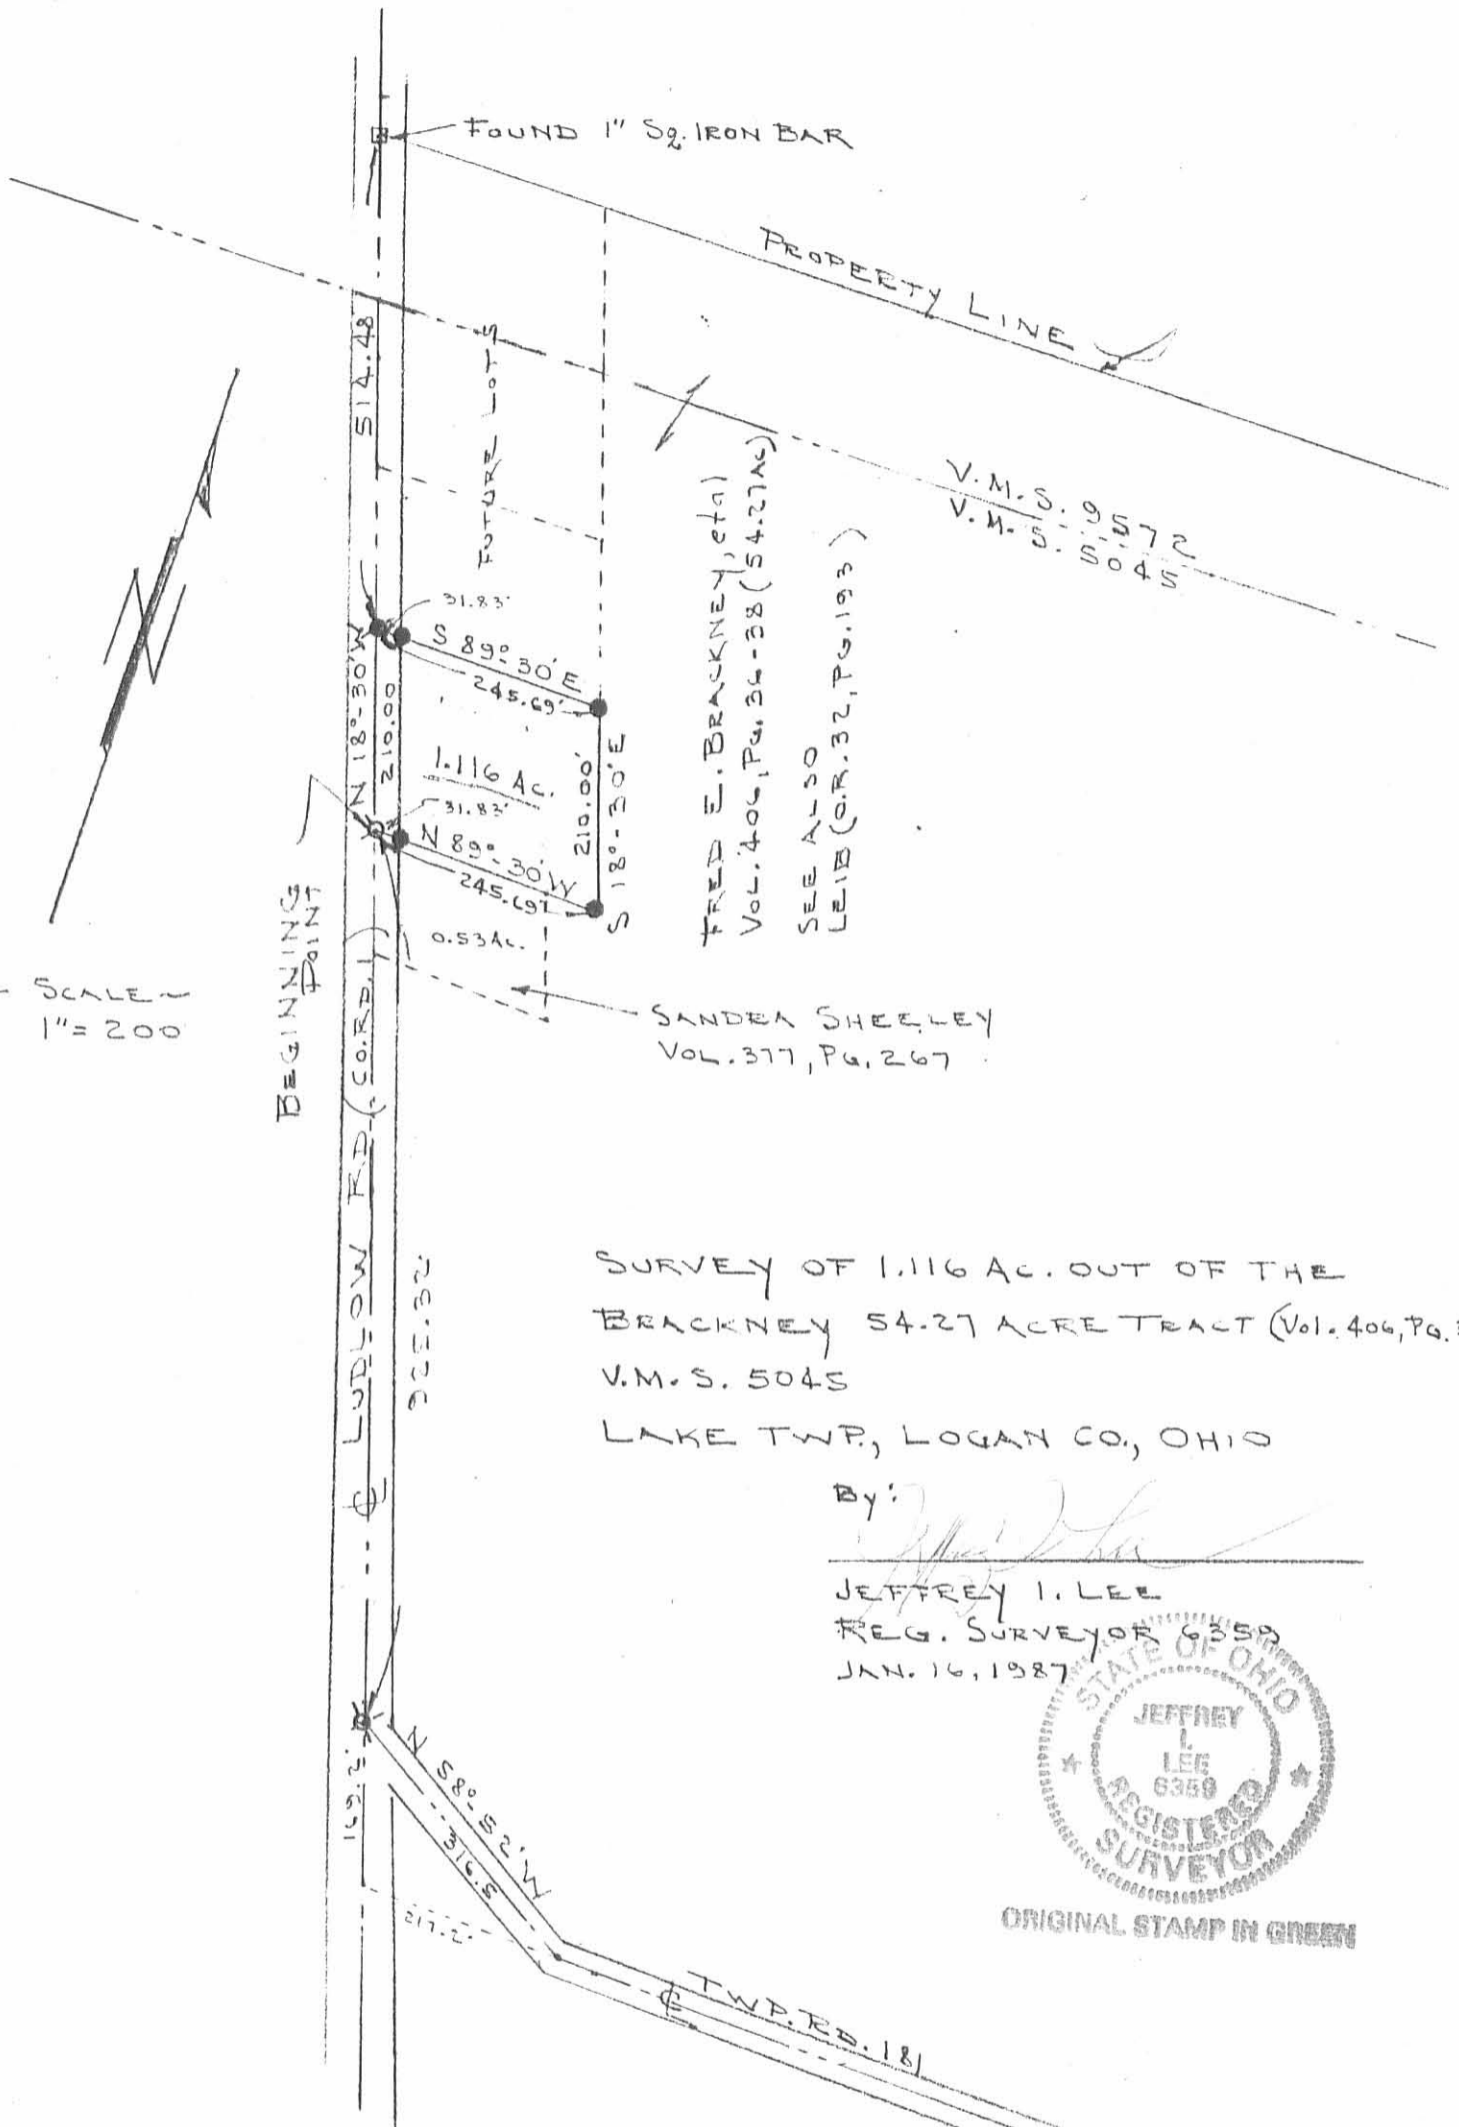 FOUND 1" Sq. IRON BAR
PROPERTY LINE
514.48
FUTURE LOTS
V.M.S. 9572
V.M.S. 5045
FRED E. BRACKNEY, etal
VOL. 406, PG. 36-38 (54.27 AC)
SEE ALSO
LEIB (O.R. 32, PG. 193)
31.83'
S 89°-30' E
245.69'
N 18°-30' W
210.00
1.116 Ac.
210.00'
S 18°-30' E
31.83'
N 89°-30' W
245.69'
0.53 Ac.
BEGINNING
POINT
N
- SCALE ~
1" = 200
SANDRA SHEELEY
VOL. 377, PG. 267
℄ LUDLOW RD. (CO. RD. 1)
925.32'
SURVEY OF 1.116 Ac. OUT OF THE
BRACKNEY 54.27 ACRE TRACT (Vol. 406, PG.
V.M.S. 5045
LAKE TWP., LOGAN CO., OHIO
By:
JEFFREY I. LEE
REG. SURVEYOR 6359
JAN. 16, 1987
STATE OF OHIO
JEFFREY
I.
LEE
6359
REGISTERED
SURVEYOR
ORIGINAL STAMP IN GREEN
169.2'
N 58°-52' W
316.5
217.2'
℄ TWP. RD. 181